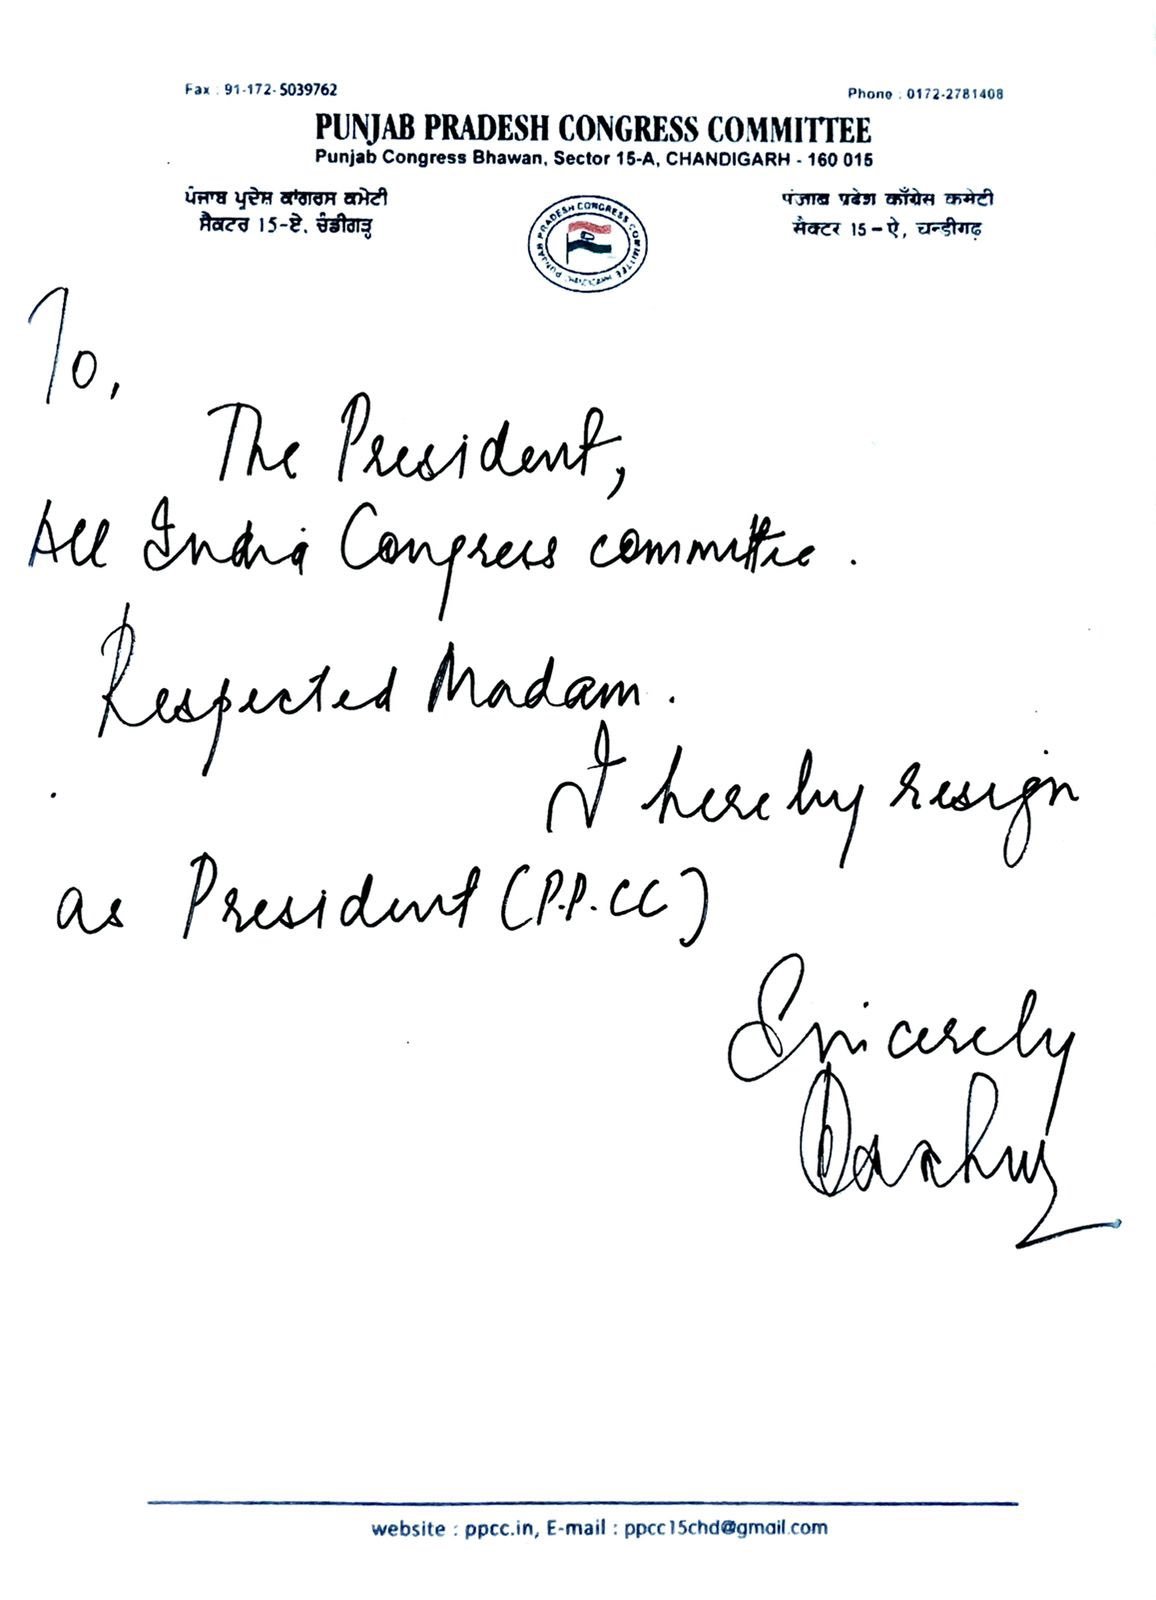 Fax : 91-172-5039762
Phone : 0172-2781408
PUNJAB PRADESH CONGRESS COMMITTEE
Punjab Congress Bhawan, Sector 15-A, CHANDIGARH - 160 015
ਪੰਜਾਬ ਪ੍ਰਦੇਸ਼ ਕਾਂਗਰਸ ਕਮੇਟੀ
ਸੈਕਟਰ 15-ਏ, ਚੰਡੀਗੜ੍ਹ
PUNJAB PRADESH CONGRESS COMMITTEE CHANDIGARH
पंजाब प्रदेश काँग्रेस कमेटी
सैक्टर 15 - ऐ, चन्डीगढ़
To,
The President,
All India Congress committee.
Respected Madam.
I hereby resign
as President (P.P.CC)
Sincerely
website : ppcc.in, E-mail : ppcc15chd@gmail.com